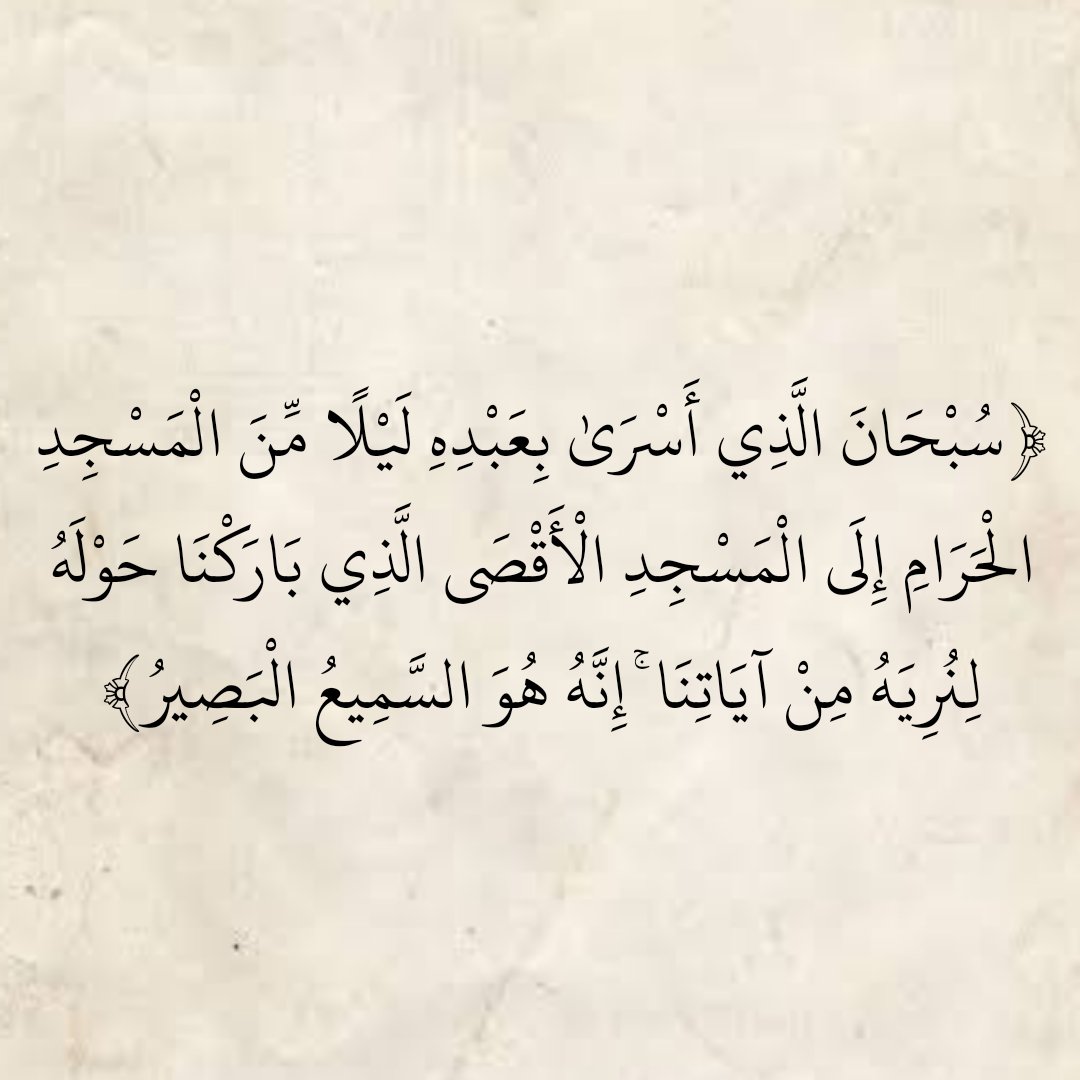 ﴿سُبْحَانَ الَّذِي أَسْرَىٰ بِعَبْدِهِ لَيْلًا مِّنَ الْمَسْجِدِ
الْحَرَامِ إِلَى الْمَسْجِدِ الْأَقْصَى الَّذِي بَارَكْنَا حَوْلَهُ
لِنُرِيَهُ مِنْ آيَاتِنَا ۚ إِنَّهُ هُوَ السَّمِيعُ الْبَصِيرُ﴾